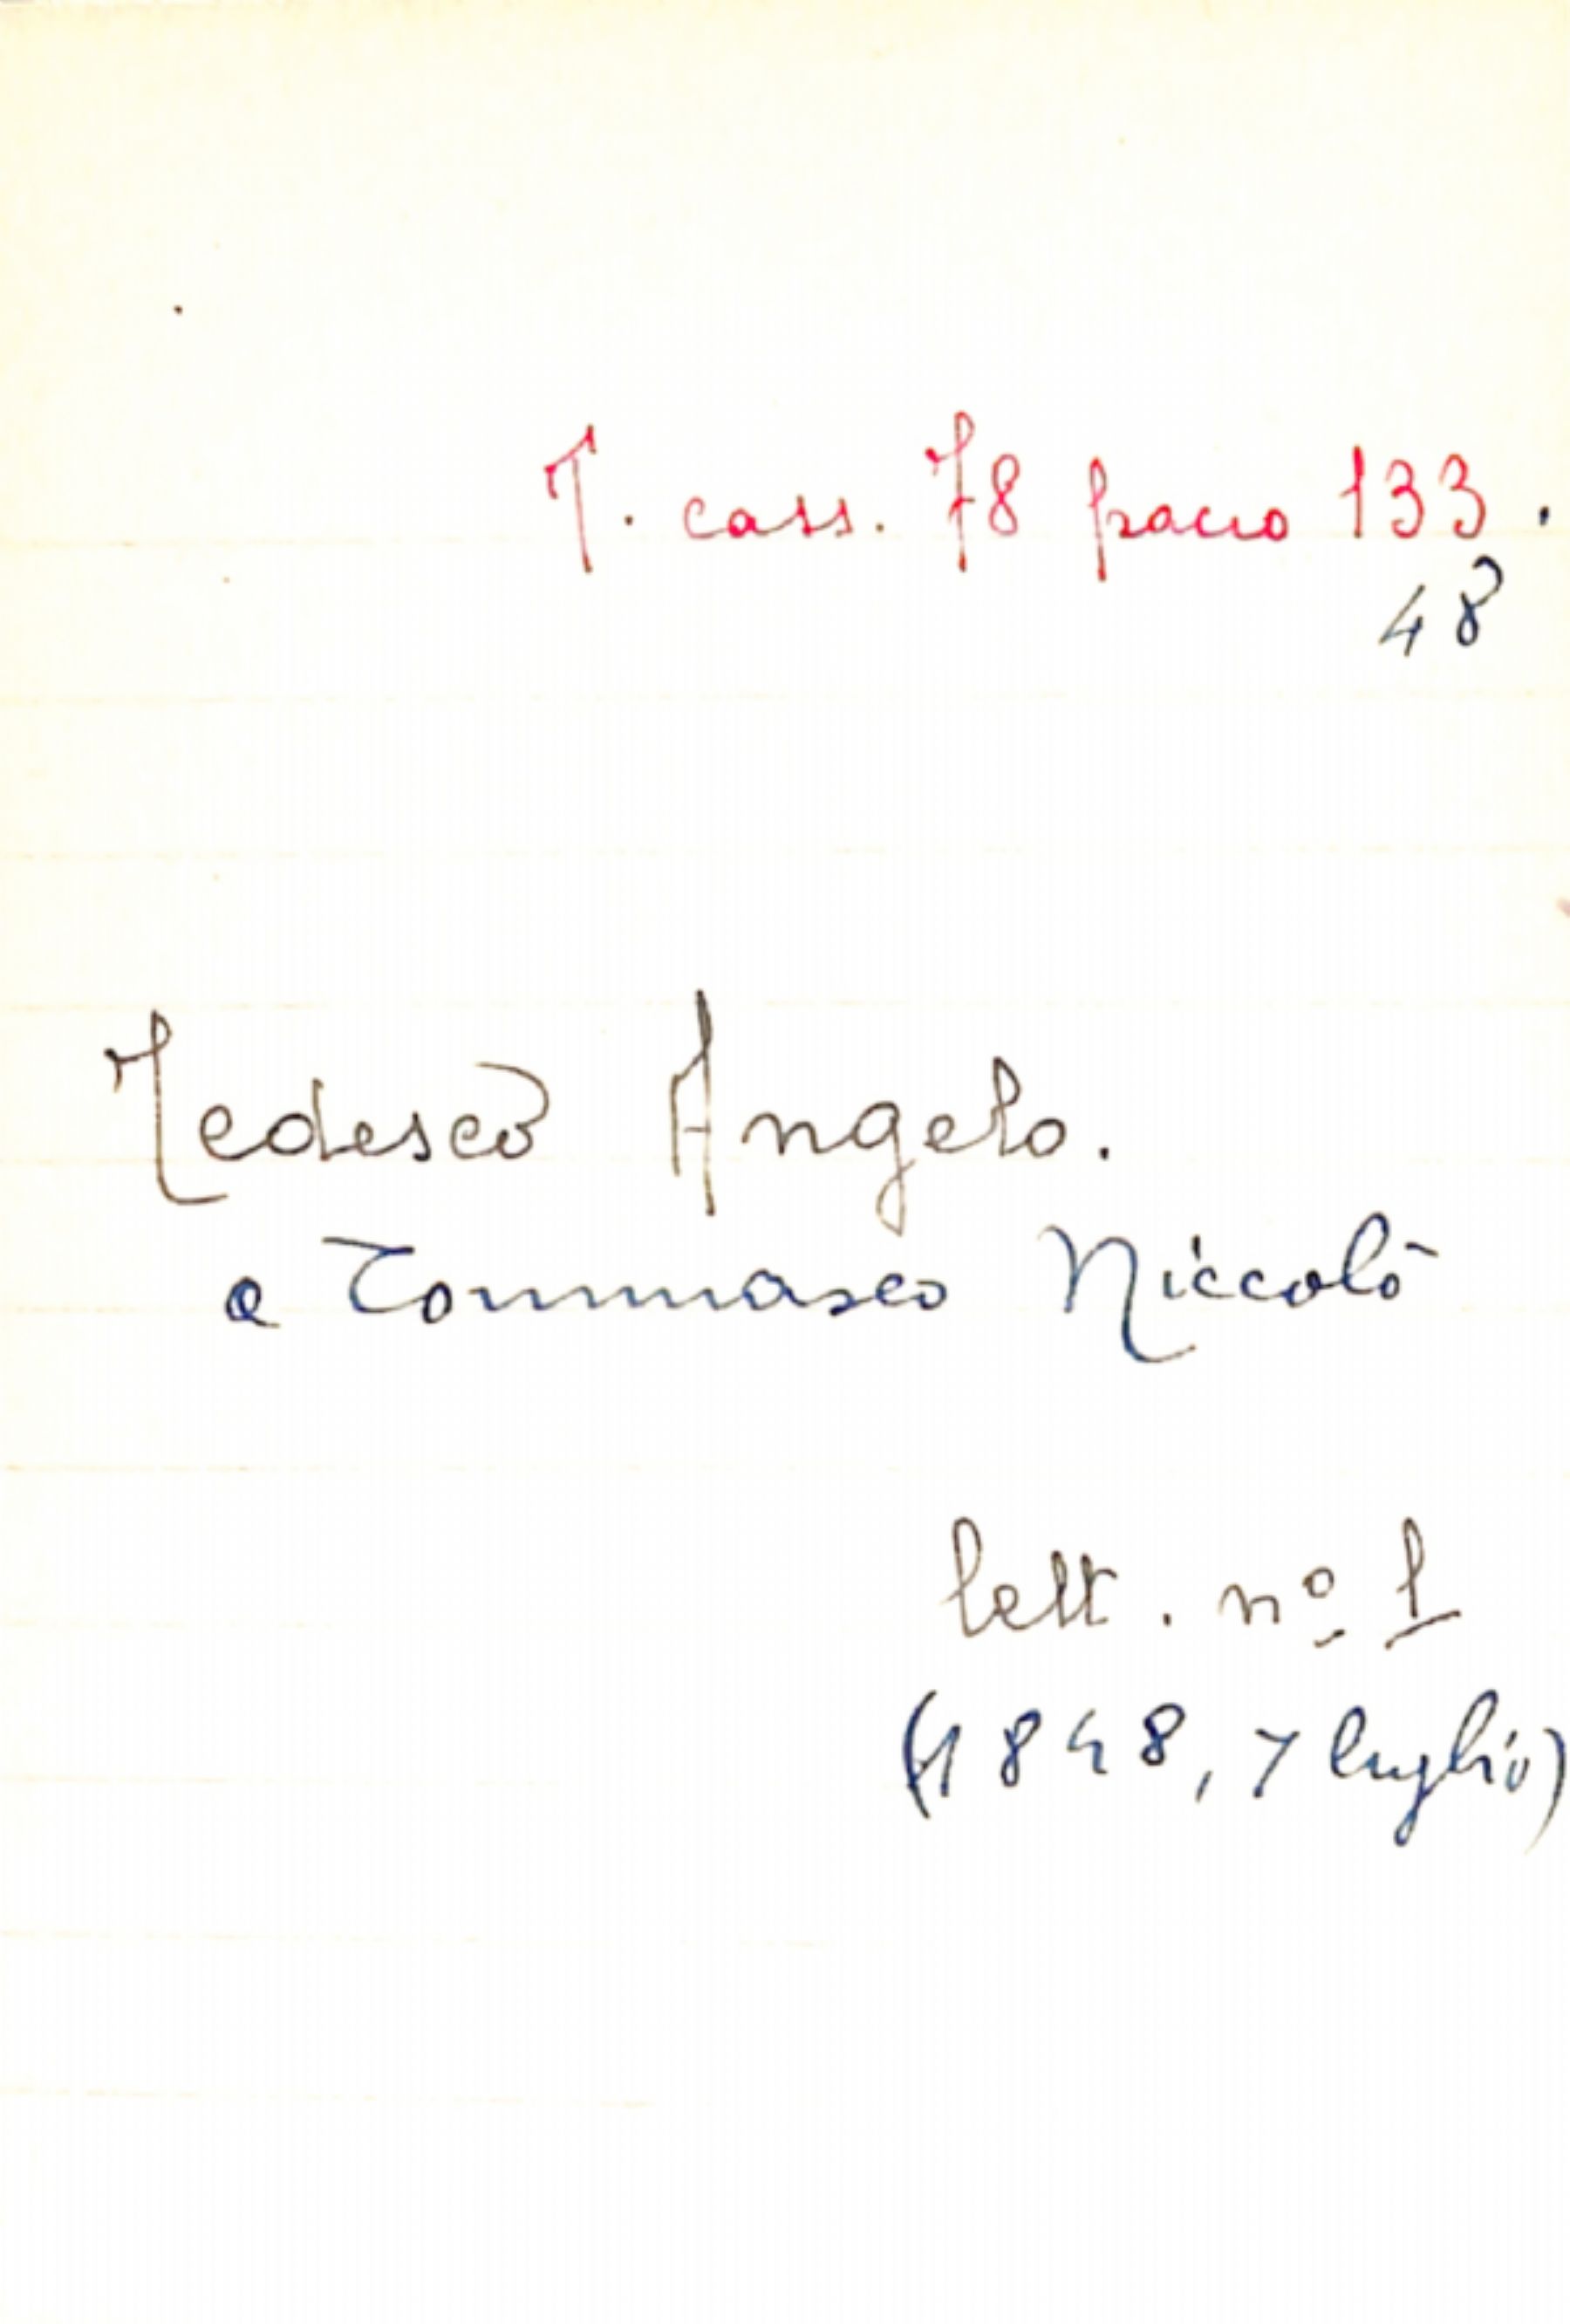 T. cass. 78 pacco 133.
48
Tedesco Angelo.
a Tommaseo Niccolò
lett. nº 1
(1848, 7 luglio)